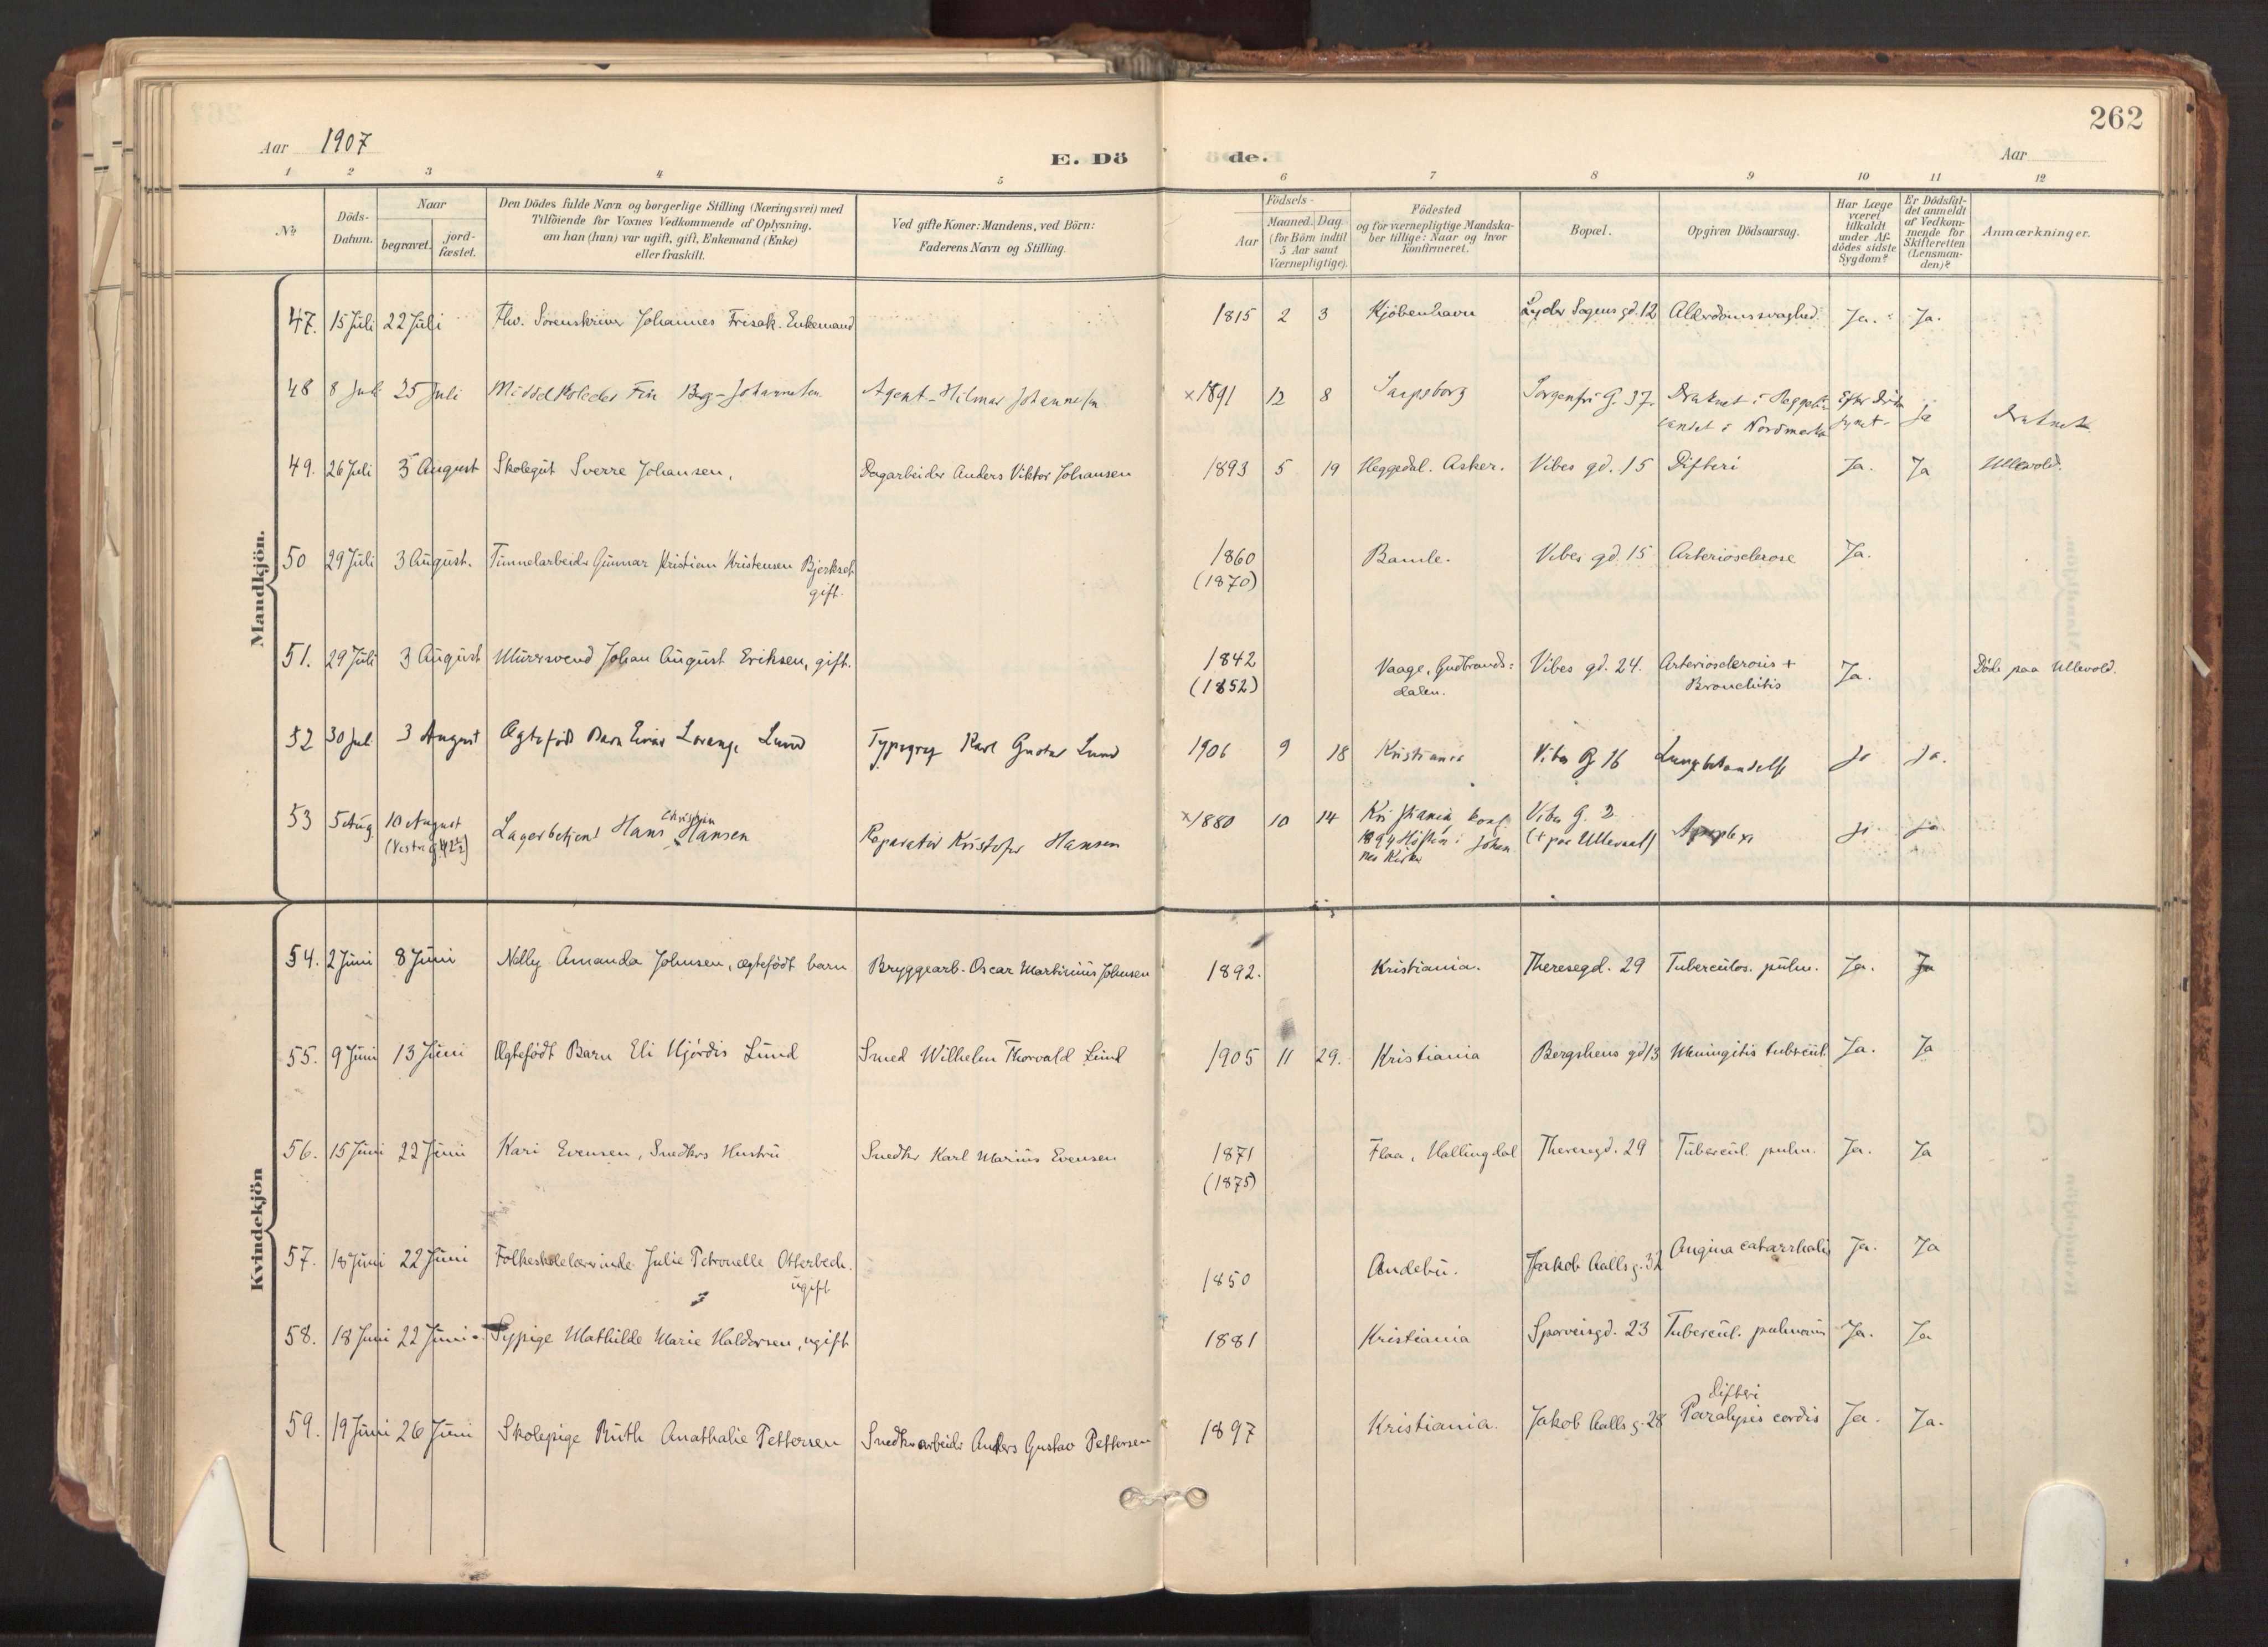 262
Aar 1907
E. Dö de.
Aar
1 2 3 4 5 6 7 8 9 10 11 12
No
Döds-Datum.
Naar
begravet.
jord-fæstet.
Den Dödes fulde Navn og borgerlige Stilling (Næringsvei) med
Tilföiende for Voxnes Vedkommende af Oplysning,
om han (hun) var ugift, gift, Enkemand (Enke)
eller fraskilt.
Ved gifte Koner: Mandens, ved Börn:
Faderens Navn og Stilling.
Födsels-
Aar
Maaned. Dag
(for Börn indtil
5 Aar samt
Værnepligtige).
Födested
og for værnepligtige Mandska-
ber tillige: Naar og hvor
konfirmeret.
Bopæl.
Opgiven Dödsaarsag.
Har Læge
været
tilkaldt
under Af-
dödes sidste
Sygdom?
Er Dödsfal-
det anmeldt
af Vedkom-
mende for
Skifteretten
(Lensman-
den)?
Anmærkninger.
Mandkjön.
47. 15 Juli 22 Juli Fhv. Sorenskriver Johannes Frisak. Enkemand 1815 2 3 Kjöbenhavn Lyder Sagens gd. 12 Alderdomssvaghed. Ja. Ja.
48 8 Juli 25 Juli Middelskoleelev Finn Berg-Johannesen Agent Hilmar Johannesen x 1891 12 8 Sarpsborg Sorgenfri G. 37. Druknet i
i Nordmarka Ja Druknet.
49. 26 Juli 3 August Skolegut Sverre Johansen, Dagarbeider Anders Viktor Johansen 1893 5 19 Heggedal. Asker. Vibes gd. 15 Difteri Ja. Ja Ullevold.
50 29 Juli 3 August. Tunnelarbeider Gunnar Kristian Kristensen 1860 Bamle. Vibes gd. 15 Arteriosclerose Ja.
gift. (1870)
51. 29 Juli 3 August Murersvend Johan August Eriksen, gift. 1842 Vaage, Gudbrands= Vibes gd. 24. Arteriosclerosis + Ja. Döde paa Ullevold.
(1852) dalen. Bronchitis
52 30 Juli 3 August Ægtefödt Barn Einar Lorang Lund Typograf Karl Gustav Lund 1906 9 18 Kristiania Vibes G 16 Lungebetændelse Ja Ja.
53 5 Aug. 10 August Lagerbetjent Hans Christian Hansen Reparatör Kristofer Hansen x 1880 10 14 Kristiania konf. Vibes G. 2 Apoplexi Ja Ja
1894 Hösten i Johan (+ paa Ullevaal)
nes Kirke
Kvindekjön
54. 2 Juni 8 Juni Nelly Amanda Johnsen, ægtefödt barn Bryggearb. Oscar Martinius Johnsen 1892. Kristiania. Theresegd. 29 Tuberculos. pulm. Ja. Ja
55. 9 Juni 13 Juni Ægtefödt Barn Eli Hjördis Lund Smed Wilhelm Thorvald Lund 1905 11 29. Kristiania Bergsliens gd 13 Meningitis tubercul. Ja. Ja
56. 15 Juni 22 Juni Kari Evensen, Snedkers Hustru Snedker Karl Marius Evensen 1871 Flaa, Hallingdal Theresegd. 29 Tubercul. pulm. Ja. Ja
(1875)
57. 18 Juni 22 Juni Folkeskolelærerinde Julie Petronelle Otterbech. 1850 Andebu. Jakob Aalls g. 32 Angina catarrhalis Ja. Ja
ugift
58. 18 Juni 22 Juni Sypige Mathilde Marie Haldorsen, ugift 1881 Kristiania Sporveisgd. 23 Tubercul. pulmonis Ja. Ja
59. 19 Juni 26 Juni Skolepige Ruth Anathalie Pettersen Snedkerarbeider Anders Gustav Pettersen 1897 Kristiania. Jakob Aalls g. 28 Difteri Paralysis cordis Ja. Ja.